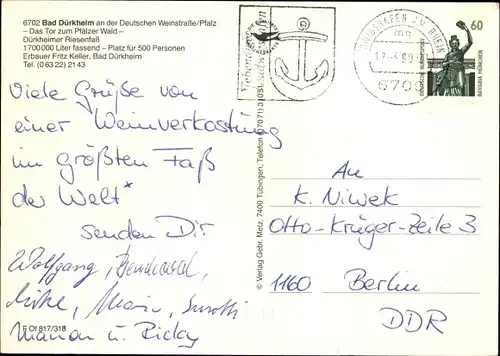 6702 Bad Dürkheim an der Deutschen Weinstraße/Pfalz
– Das Tor zum Pfälzer Wald –
Dürkheimer Riesenfaß
1 700 000 Liter fassend – Platz für 500 Personen
Erbauer Fritz Keller, Bad Dürkheim
Tel. (0 63 22) 21 43
Viele Grüße von
einer Weinverkostung
im größten Faß
der Welt*
senden Dir
Wolfgang,
Marion u. Ricky
F Of 817/318
© Verlag Gebr. Metz, 7400 Tübingen, Telefon (07071)
LUDWIGSHAFEN AM RHEIN
mg
6700
60
DEUTSCHE BUNDESPOST
BAVARIA MÜNCHEN
An
K. Niwek
Otto-Krüger-Zeile 3
1160 Berlin
DDR